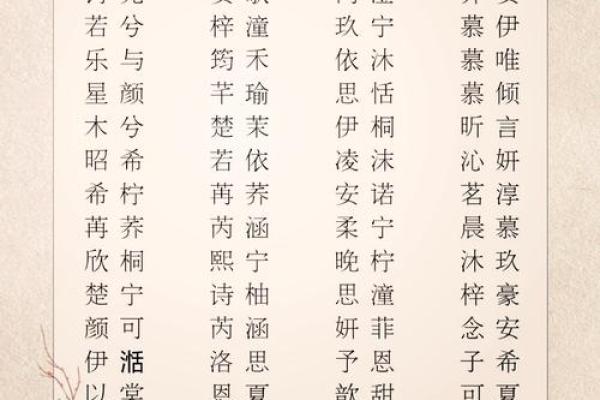 若兮 梓潼 玖宁 慕伊
乐与 筠禾 依沐 慕唯
星颜 芊瑜 思恬 慕倾
木兮 楚茉 伊桐 昕言
昭希 若依 凌沫 沁妍
希柠 苒荞 安诺 茗淳
苒荞 芮涵 柔宁 晨慕
欣桐 熙宁 晚柠 沐玖
楚宁 诗柚 思潼 梓豪
颜可 芮涵 妍菲 念安
伊湉 洛思 予恩 子希
以棠 恩夏 歆甜 可夏